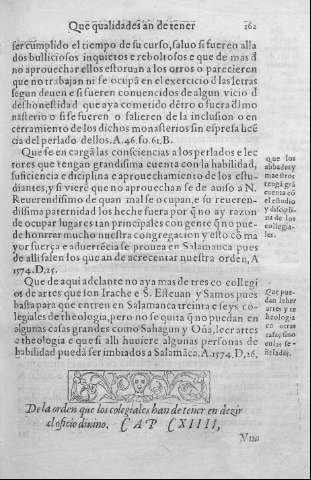 Que qualidades an de tener 162
ser cumplido el tiempo de su curso, saluo si fueren alla
dos bulliciosos inquietos e reboltosos e que de mas d̃
no aprouechar ellos estoruan a los otros o parecieren
que no trabajan ni se ocupã en el exercicio d̃ las letras
segun deuen e si fueren conuencidos de algun vicio d̃
deshonestidad que aya cometido dẽtro o fuera d̃l mo
nasterio o si se fueren o salieren de la inclusion o en
cerramiento de los dichos monasterios sin espresa licẽ
cia del perlado dellos. A. 46. fo. 61. B.
Que se en cargã las consciencias a los perlados e lec
tores que tengan grandisima cuenta con la habilidad,
suficiencia e diciplina e aprouechamiento de los estu-
diantes, y si vierẽ que no aprouechan se de auiso a N.
Reuerendisimo de quan mal se ocupan, e su reueren-
disima paternidad los heche fuera por q̃ no ay razon
de ocupar lugares tan principales con gente q̃ no pue-
de honrrar mucho nuestra congregacion y esto cõ ma
yor fuerça e aduertẽcia se prouea en Salamanca pues
de alli salen los que an de acrecentar nuestra orden, A
1574. D, 25.
que los
abbades y
maestros
tengã grã
cuenta cõ
el estudio
y discipli-
na de los
collegia-
les.
Que de aqui adelante no aya mas de tres co collegi
os de artes que son Irache e S. Esteuan y Samos pues
basta para que entren en Salamanca treinta e seys co-
legiales de theologia, pero no se quita q̃ no puedan en
algunas casas grandes como Sahagun y Oña, leer artes
e theologia e que si alli huuiere algunas personas de
habilidad puedã ser imbiados a Salamãca. A. 1574. D, 26,
Que pue-
dan leher
artes y te
heologia
en otras
casas, sino
en las se-
ñaladas.
De la orden que los colegiales han de tener en dezir
el oficio diuino. CAP CXIIII,
V